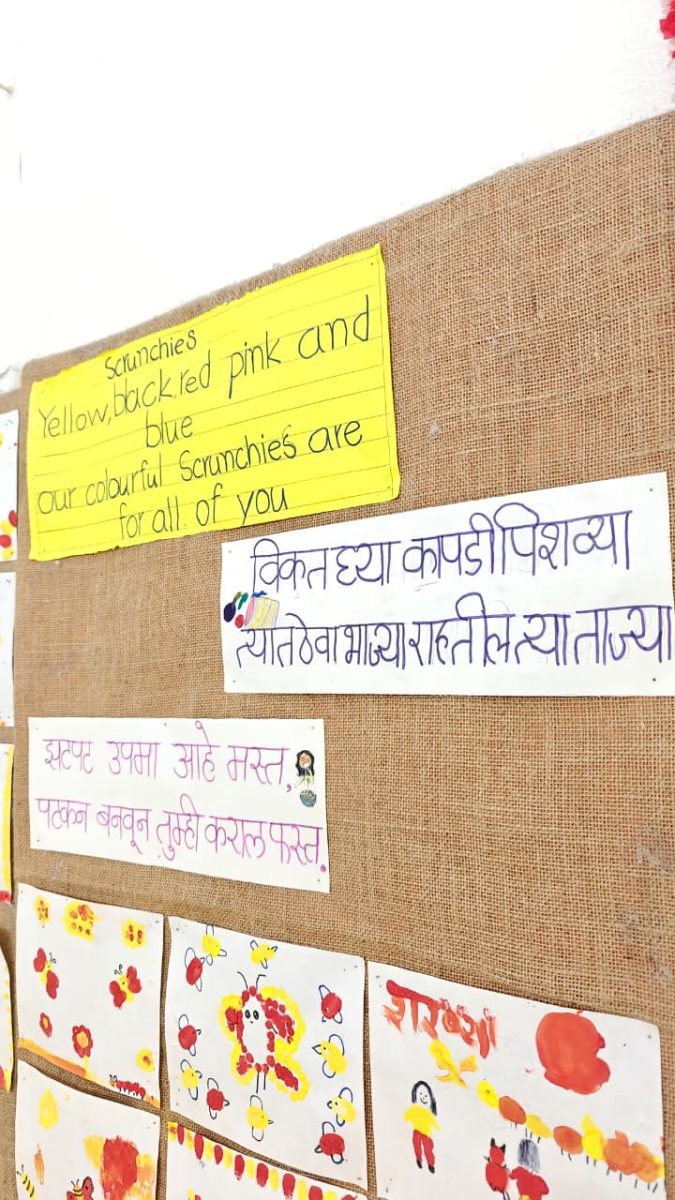 Scrunchies
Yellow, black, red pink and
blue
our colourful Scrunchies are
for all of you
विकत घ्या कापडी पिशव्या
त्यात ठेवा भाज्या राहतील त्या ताज्या
झटपट उपमा आहे मस्त,
पटकन बनवून तुम्ही कराल फस्त.